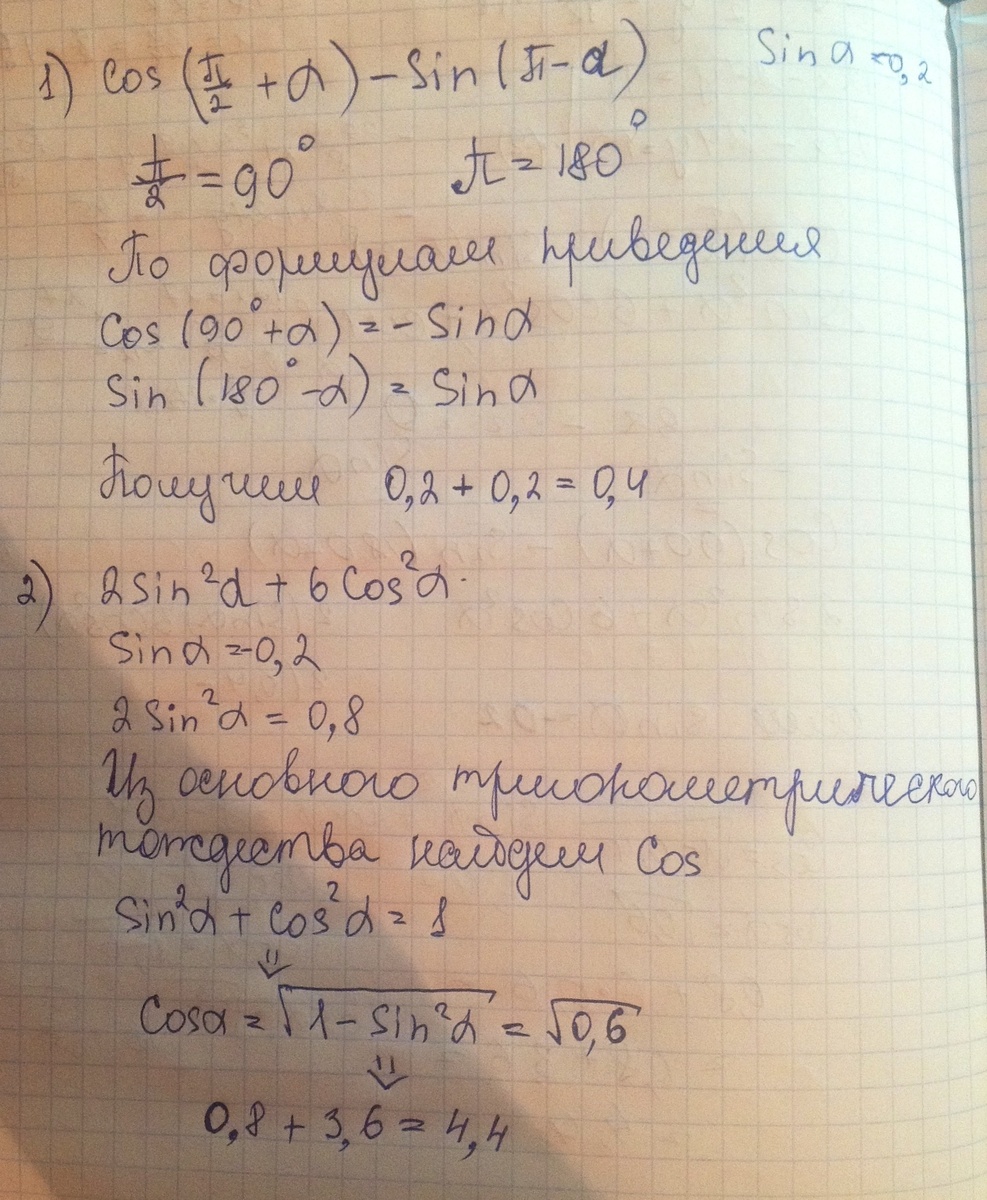 1) cos (π/2 + α) - sin (π - α)    Sin α = -0,2
π/2 = 90°    π = 180°
По формулам приведения
Cos (90° + α) = - Sin α
Sin (180° - α) = Sin α
Получим 0,2 + 0,2 = 0,4
2) 2 Sin²α + 6 Cos²α.
Sin α = -0,2
2 Sin²α = 0,8
Из основного тригонометрического
тождества найдем Cos
Sin²α + Cos²α = 1
⇓
Cosα = √1 - Sin²α = √0,6
⇓
0,8 + 3,6 = 4,4